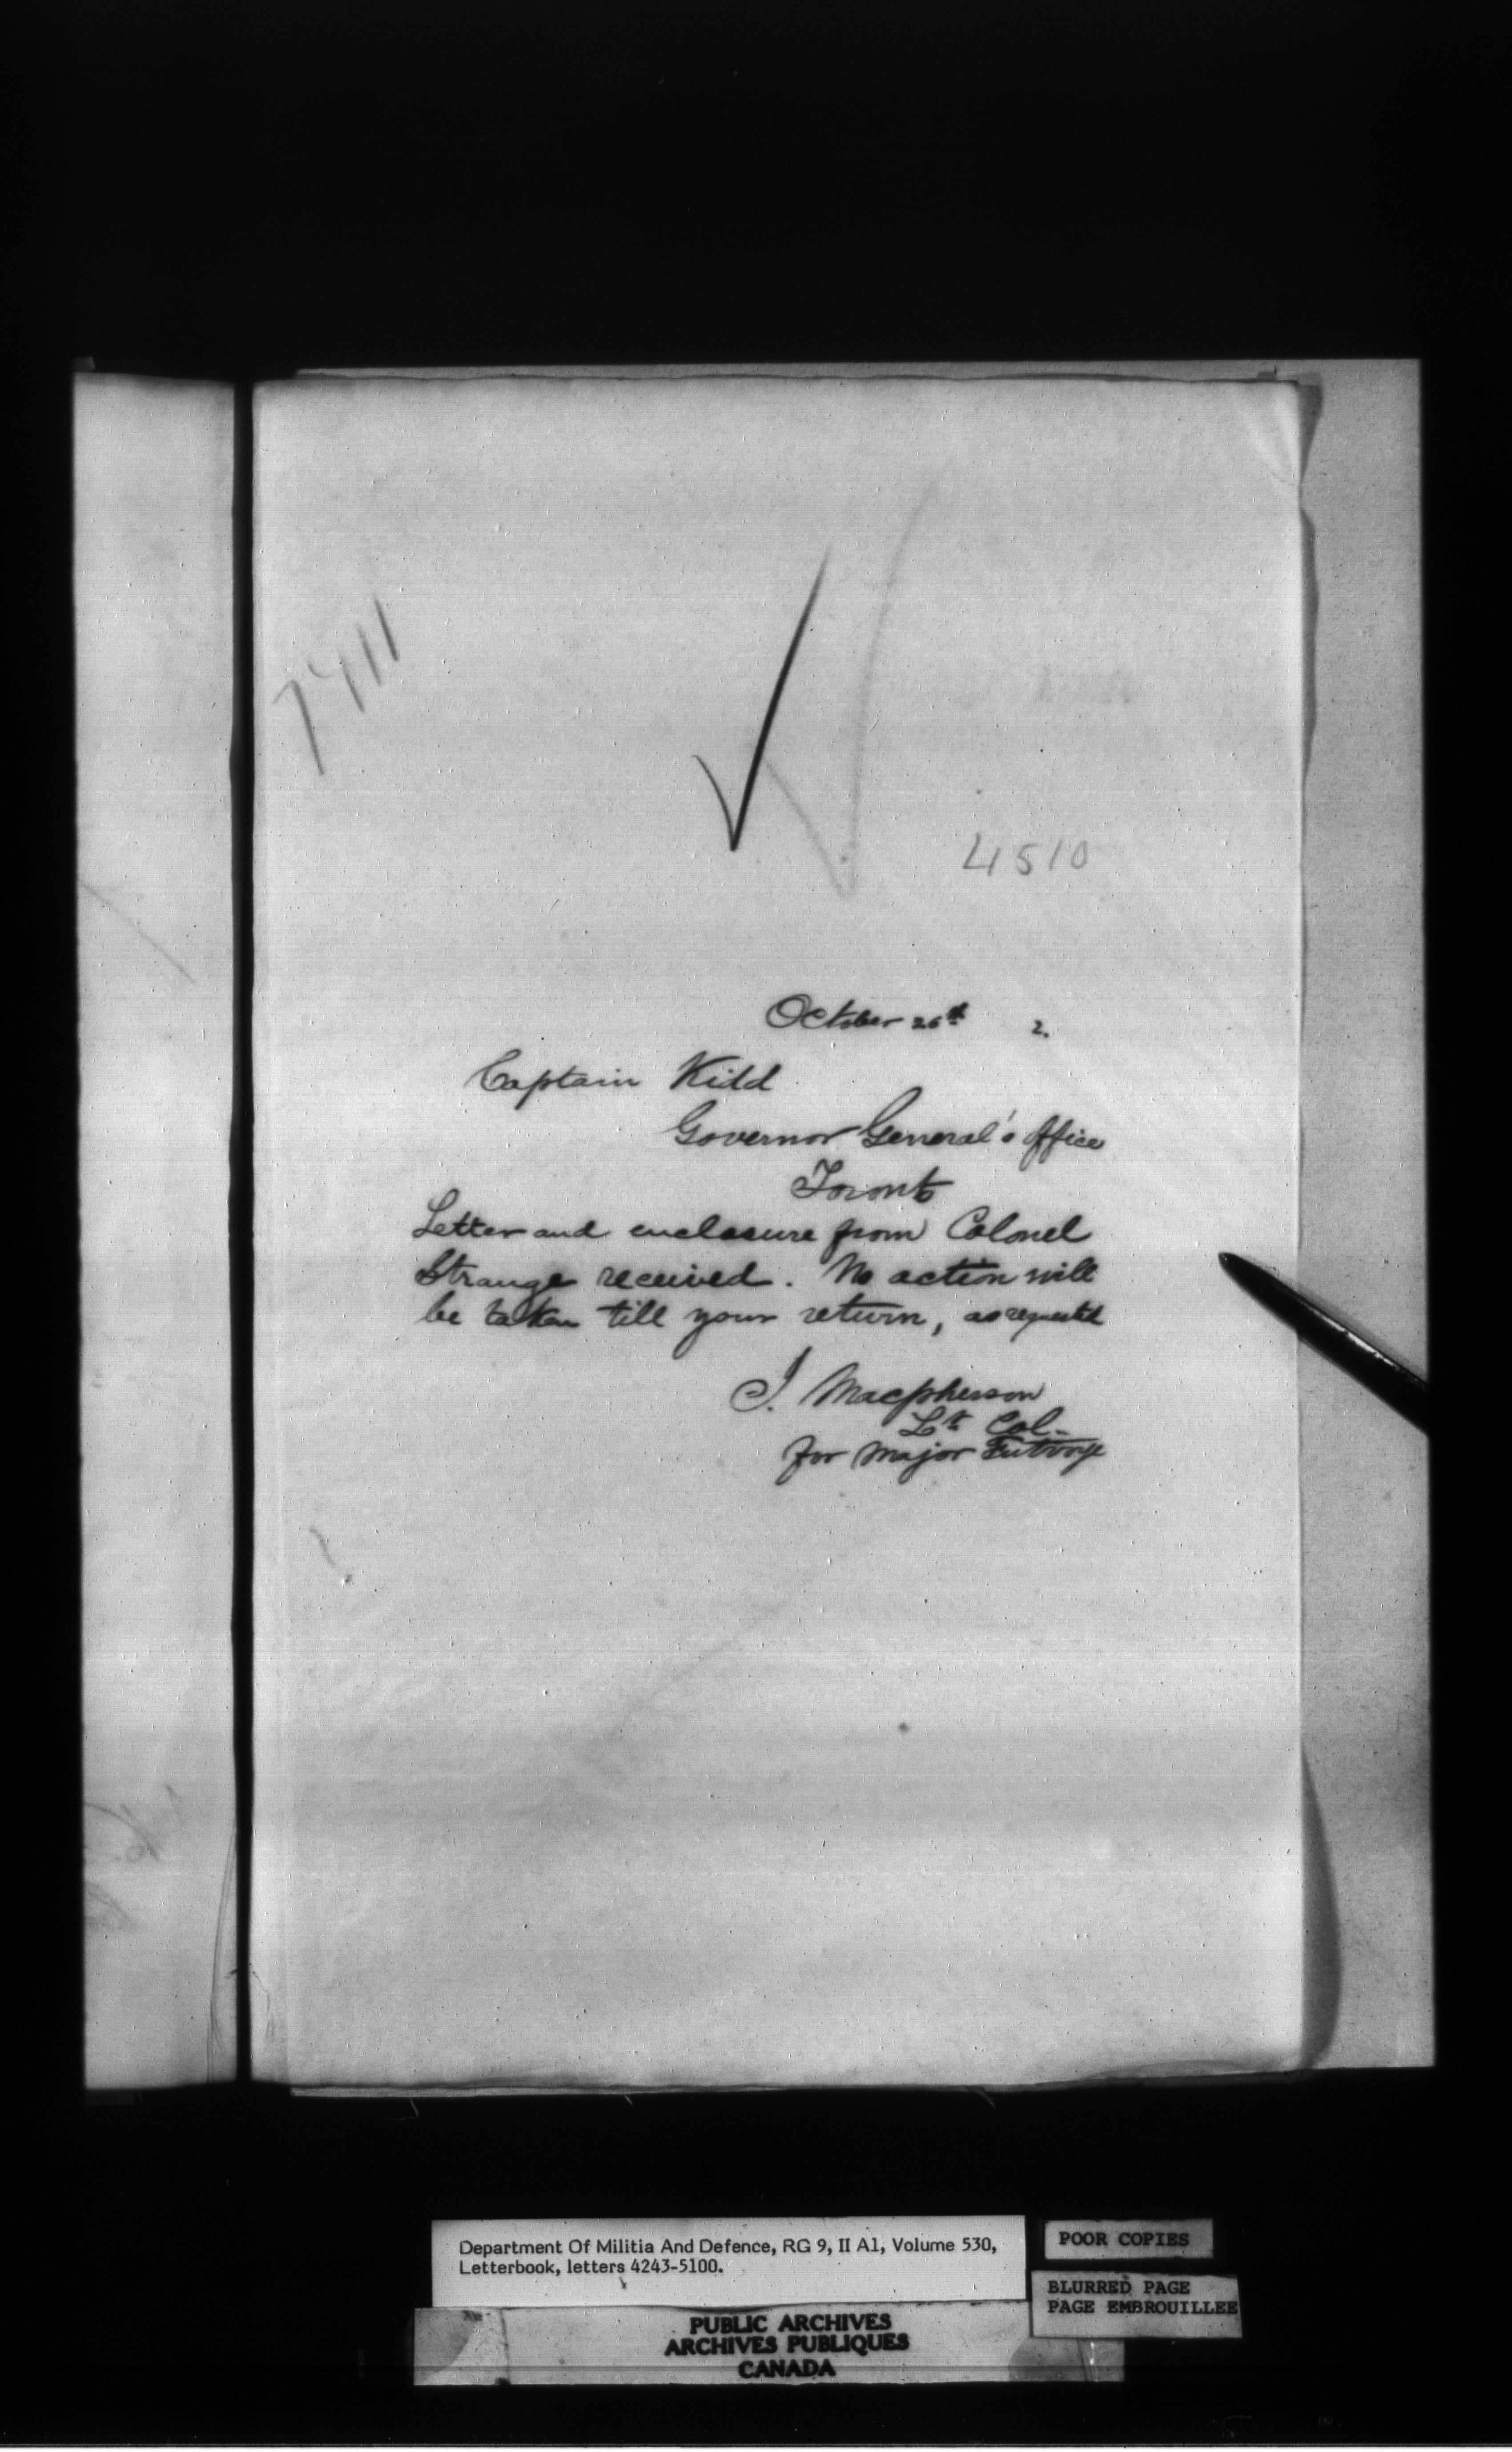 7411
4510
October 26th 2.
Captain Kidd
Governor General's Office
Toronto
Letter and enclosure from Colonel
Strange received. No action will
be taken till your return, as requested
J. Macpherson
Lt Col-
for Major Futvoye
Department Of Militia And Defence, RG 9, II A1, Volume 530,
Letterbook, letters 4243-5100.
POOR COPIES
BLURRED PAGE
PAGE EMBROUILLEE
PUBLIC ARCHIVES
ARCHIVES PUBLIQUES
CANADA